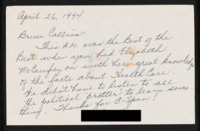 April 26, 1994
Brian Collins:
This A.M. was the Best of the
Best when you had Elizabeth
McCaughey on with her great knowledge
of the facts about Health Care.
We didn't have to listen to all
the political "pratter" to learn some-
thing. Thanks for C-Span!